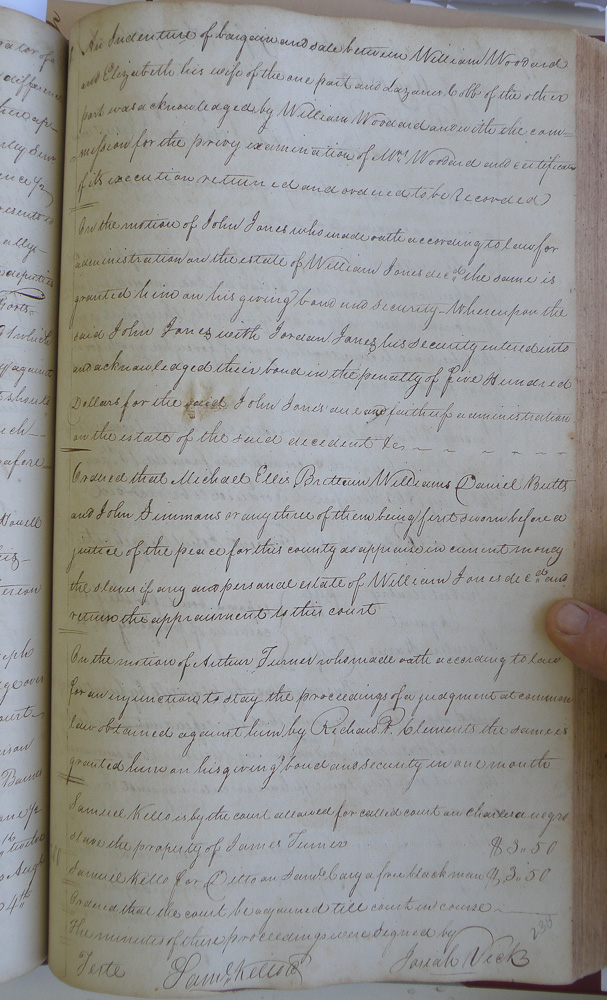 An Indenture of bargain and sale between William Woodard
and Elizabeth his wife of the one part and Lazarus Cobb of the other
part was acknowledged by William Woodard and with the com-
mission for the privy examination of Mrs. Woodard and certificate
of its execution returned and ordered to be recorded
On the motion of John Jones who made oath according to law for
administration on the estate of William Jones decd. the same is
granted him on his giving bond and security - Whereupon the
said John Jones with Jordan Jones his security entered into
and acknowledged their bond in the penalty of five Hundred
Dollars for the said John Jones due and faithful administration
on the estate of the said decedent &c
Ordered that Michael Ellis Britain Williams Daniel Butts
and John Simmons or any three of them being first sworn before a
justice of the peace for this county do appraise in current money
the slaves if any and personal estate of William Jones decd. and
return the appraisment to this court
On the motion of Arthur Turner who made oath according to law
for an injunction to stay the proceedings of a judgment at common
law obtained against him by Richard P. Clements the same is
granted him on his giving bond and security in one month
Samuel Kello is by the court allowed for called court on Charles a negro
slave the property of James Turner $3..50
Samuel Kello for Ditto on Saml. Cary a free black man $3..50
Ordered that the court be adjourned till court in course
The minutes of these proceedings were signed by
Teste Saml. Kello Josiah Vick
238
ator of a
difference
ence
-ally-
deputies
which
against
should
Howell
eph
court-
Barnes
4th